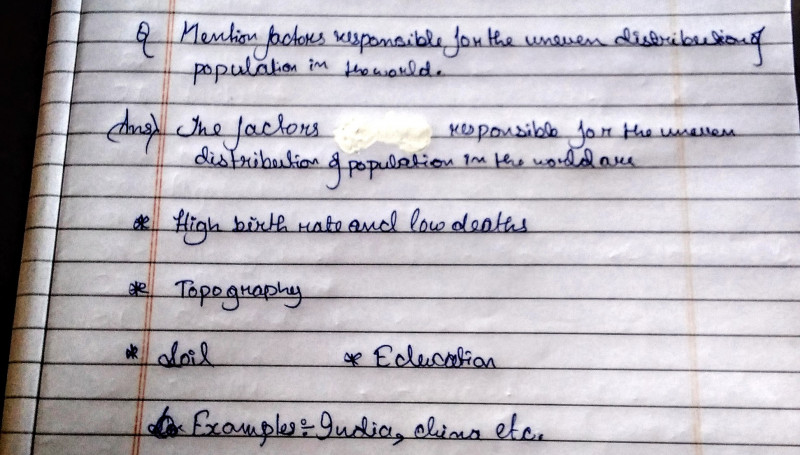 Q Mention factors responsible for the uneven distribution of
population in the world.
Ans) The factors responsible for the uneven
distribution of population in the world are
* High birth rate and low deaths
* Topography
* Soil * Education
Examples:- India, china etc.